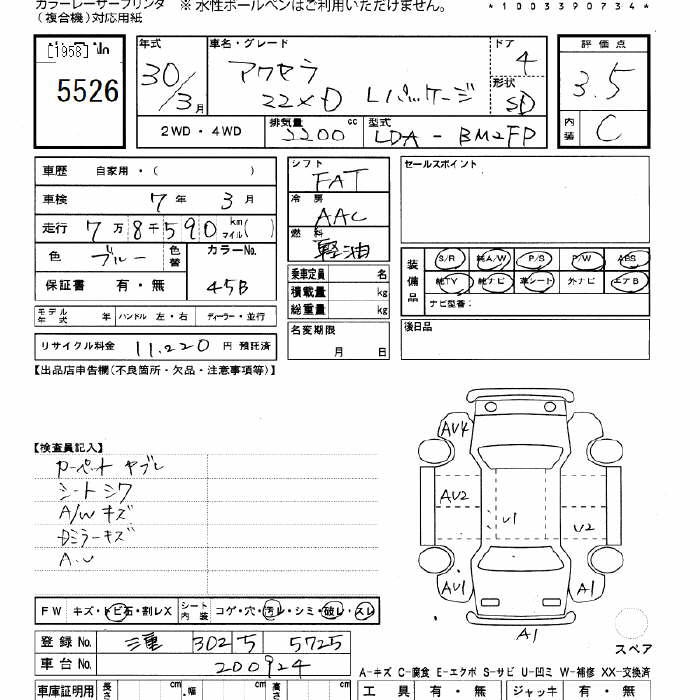 カラーレーザープリンタ ※ 水性ボールペンはご利用いただけません。
(複合機)対応用紙
*1003390734*
[1958]
5526
年式 30/3月
車名・グレード アクセラ
22XD Lパッケージ
ドア 4
形状 SD
評価点 3.5
内装 C
2WD・4WD
排気量 2200 cc
型式 LDA-BM2FP
車歴 自家用・( )
車検 7年 3月
走行 7万8千590 km マイル( )
色 ブルー 色替
カラーNo. 45B
保証書 有・無
モデル年式 年 ハンドル 左・右 ディーラー・並行
リサイクル料金 11,220 円 預託済
シフト FAT
冷房 AAC
燃料 軽油
乗車定員 名
積載量 kg
総重量 kg
名変期限 月 日
セールスポイント
装備品
S/R 純A/W P/S P/W ABS
純TV 純ナビ 革シート 外ナビ エアB
ナビ型番:
後日品
【出品店申告欄(不良箇所・欠品・注意事項等)】
【検査員記入】
カーペット ヤブレ
シート シワ
A/W キズ
Dミラーキズ
A.U
AU4
AU2
U1
U2
AU1
A1
A1
スペア
FW キズ・トビ石・割レX
シート内装 コゲ・穴・汚レ・シミ・破レ・スレ
登録No. 三重 302 5725
車台No. 200924
A-キズ C-腐食 E-エクボ S-サビ U-凹ミ W-補修 XX-交換済
車庫証明用 長さ cm 幅 cm cm
工具 有・無 ジャッキ 有・無